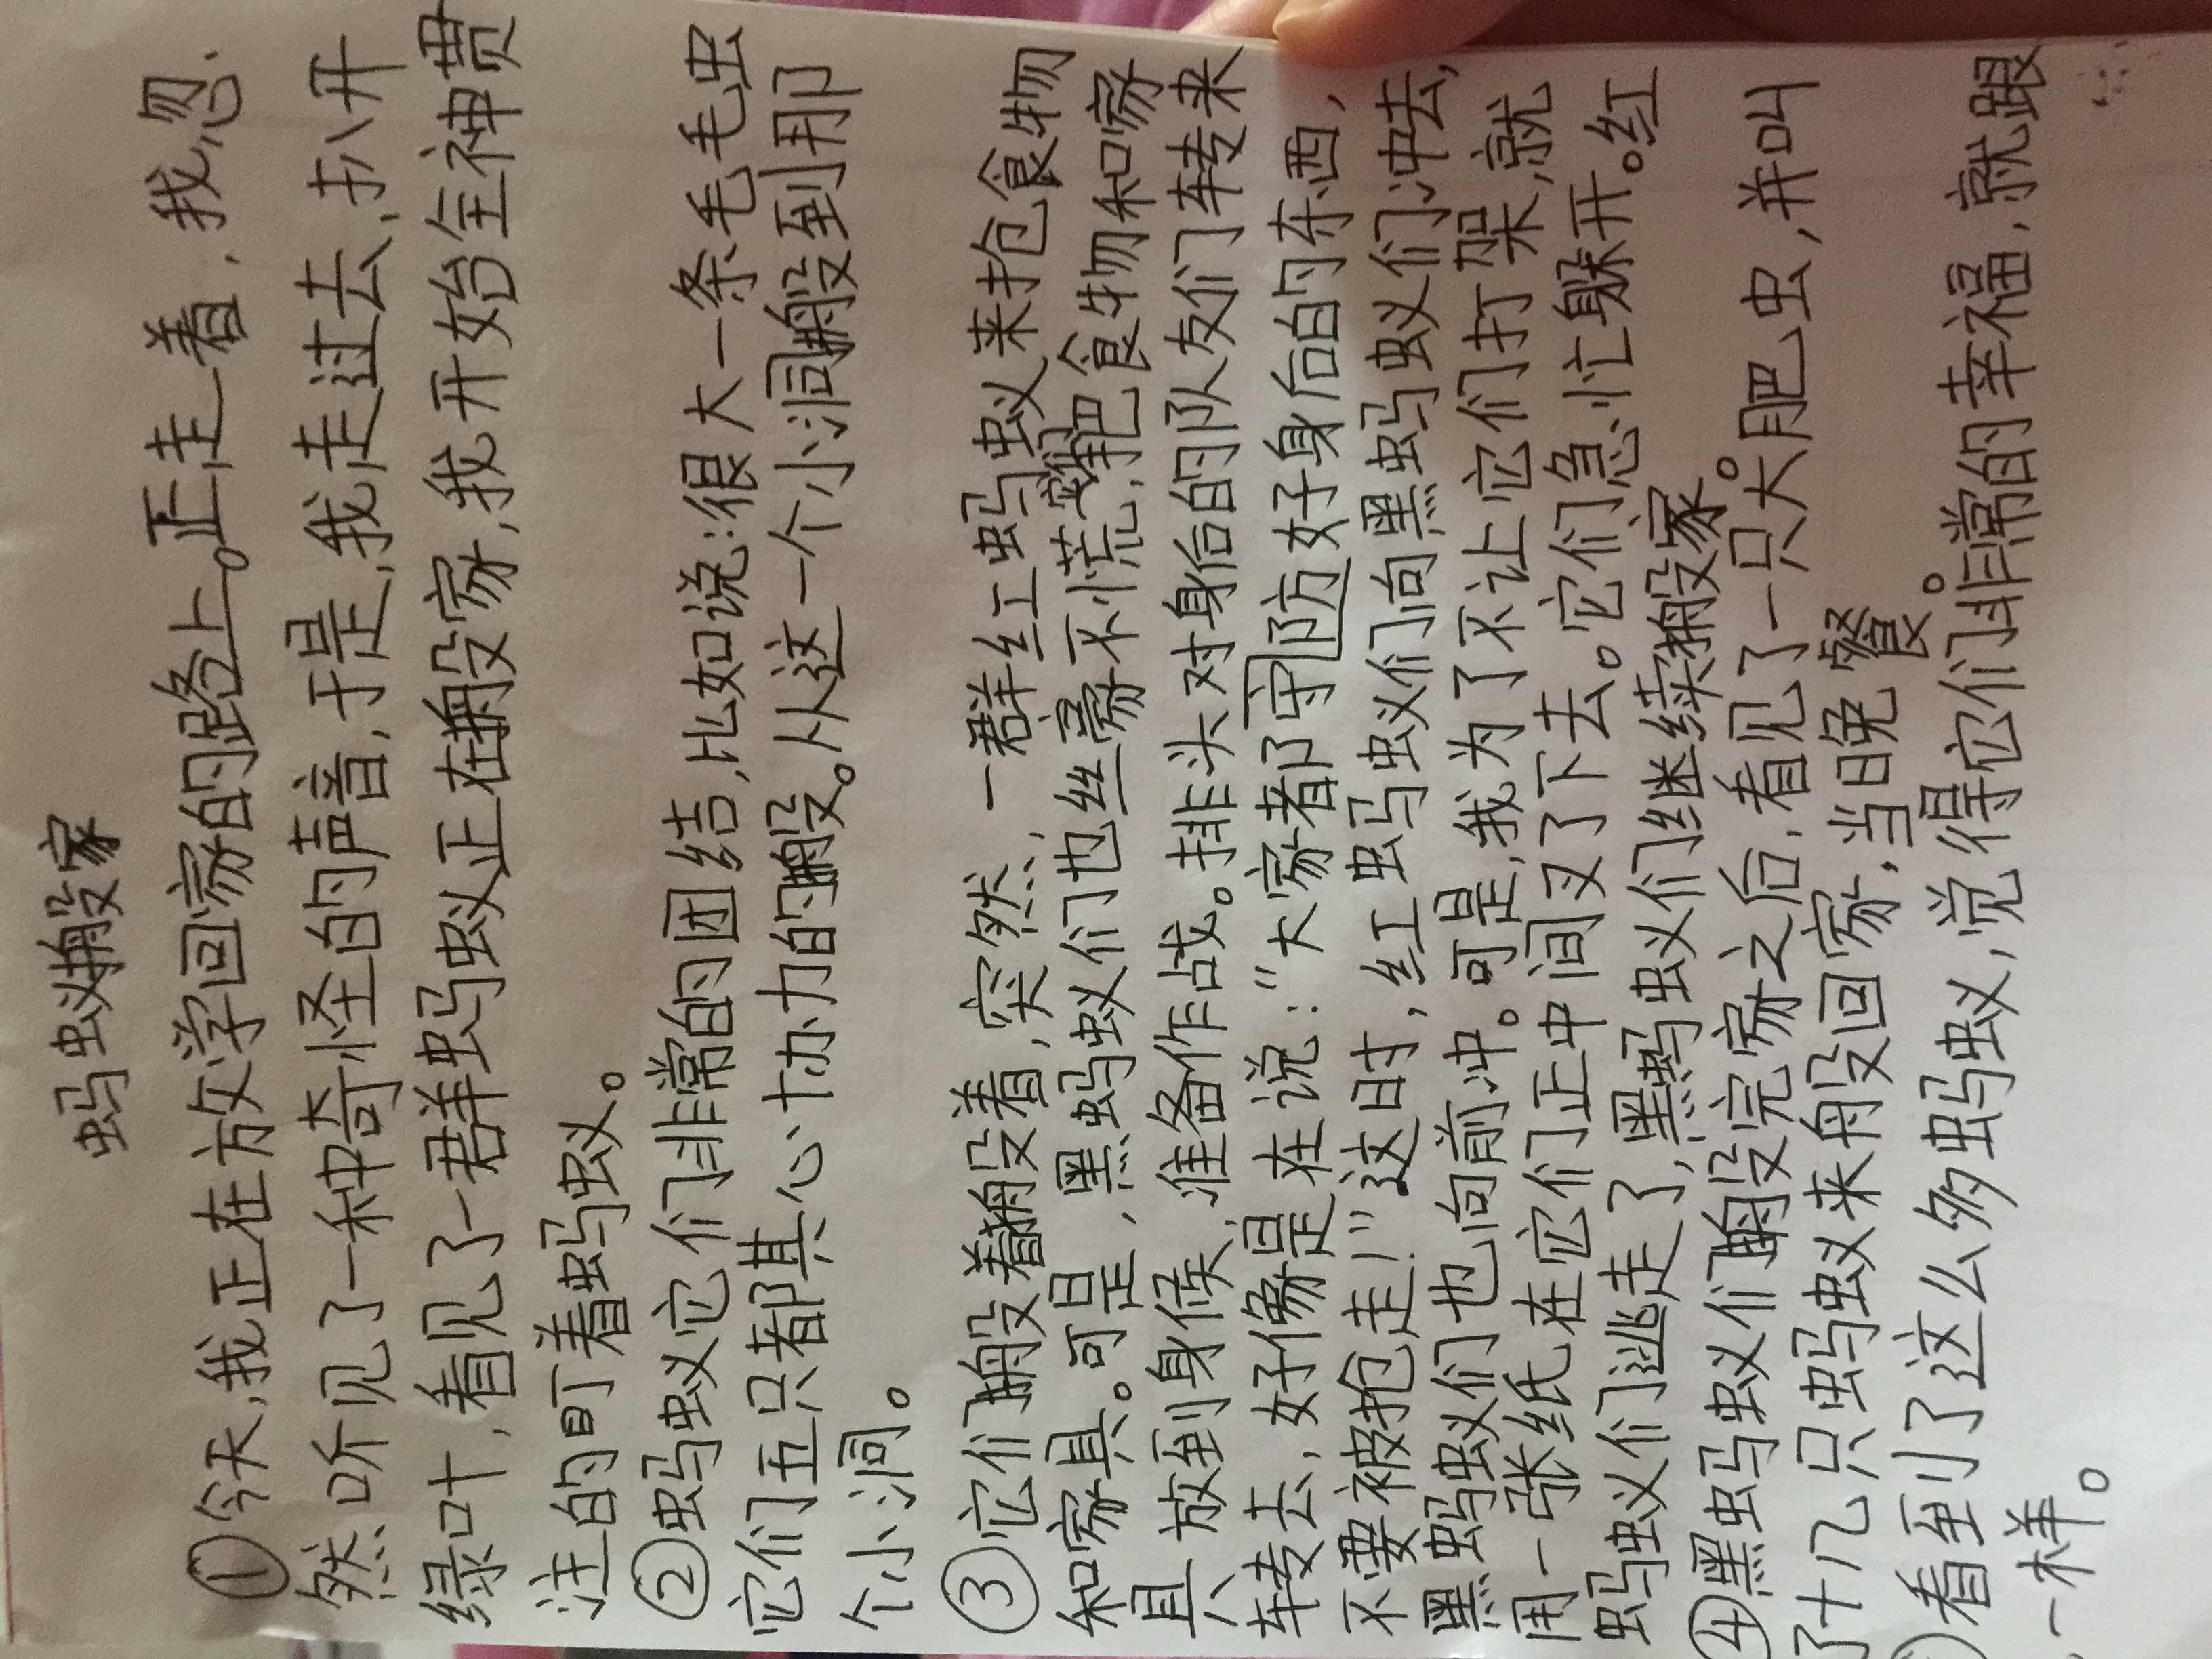 蚂蚁搬家
①今天,我正在放学回家的路上。正走着,我,忽
然听见了一种奇怪的声音,于是,我走过去,扒开
绿叶,看见了一群蚂蚁正在搬家,我开始全神贯
注的盯着蚂蚁。
②蚂蚁它们非常的团结,比如说:很大一条毛毛虫
它们五只都其心协力的搬。从这一个小洞搬到那
个小洞。
③它们搬着搬着,突然,一群红蚂蚁来抢食物
和家具。可是,黑蚂蚁们也丝毫不慌,把食物和家
具放到身候,准备作战。排头对身后的队友们转来
转去,好像是在说:“大家都守防好身后的东西,
不要被抢走!”这时,红蚂蚁们向黑蚂蚁们冲去,
黑蚂蚁们也向前冲。可是,我为了不让它们打架,就
用一张纸在它们正中间叉了下去。它们急忙躲开。红
蚂蚁们逃走了,黑蚂蚁们继续搬家。
④黑蚂蚁们搬完家之后,看见了一只大肥虫,并叫
了十几只蚂蚁来般回家,当日晚餐。
看到了这么多蚂蚁,觉得它们非常的幸福,就跟
一样。